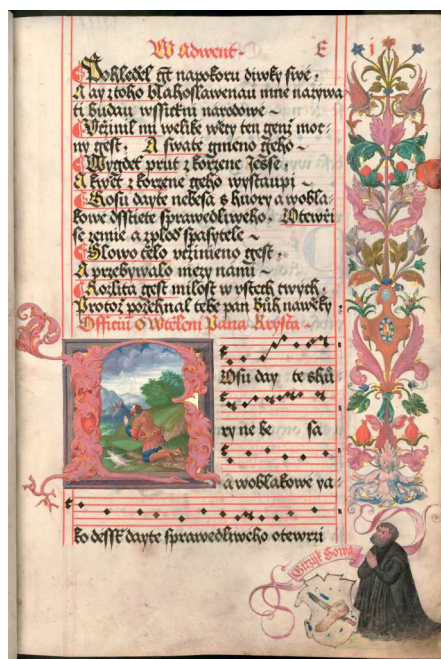 W Adwent. E i
Pohleděl gt napokoru diwky swé,
A ay z toho blahoslawenau mne nazywa
ti budau wssickni narodowe
Včinil mi welike wěcy ten genž moc-
ny gest, A swate gmeno geho
Wygdet prut z kořzene Jesse,
A kwět z kořzene geho wystaupi
Rosu dayte nebesa s huory a wobla-
kowe dsstiete sprawedliweho. Otewři
se zemie a zploď spasytele
Slowo tělo včinieno gest,
A přebywalo mezy nami
Rozlita gest milost w vstech twych,
Protož požehnal tebe pan Bůh nawěky
Officiũ o Wtěleni Pana Krysta
Osu day te shů-
ry ne be sa
a woblakowe ya-
ko dessť dayte sprawedliweho otewrzi
Girzijk Sowa